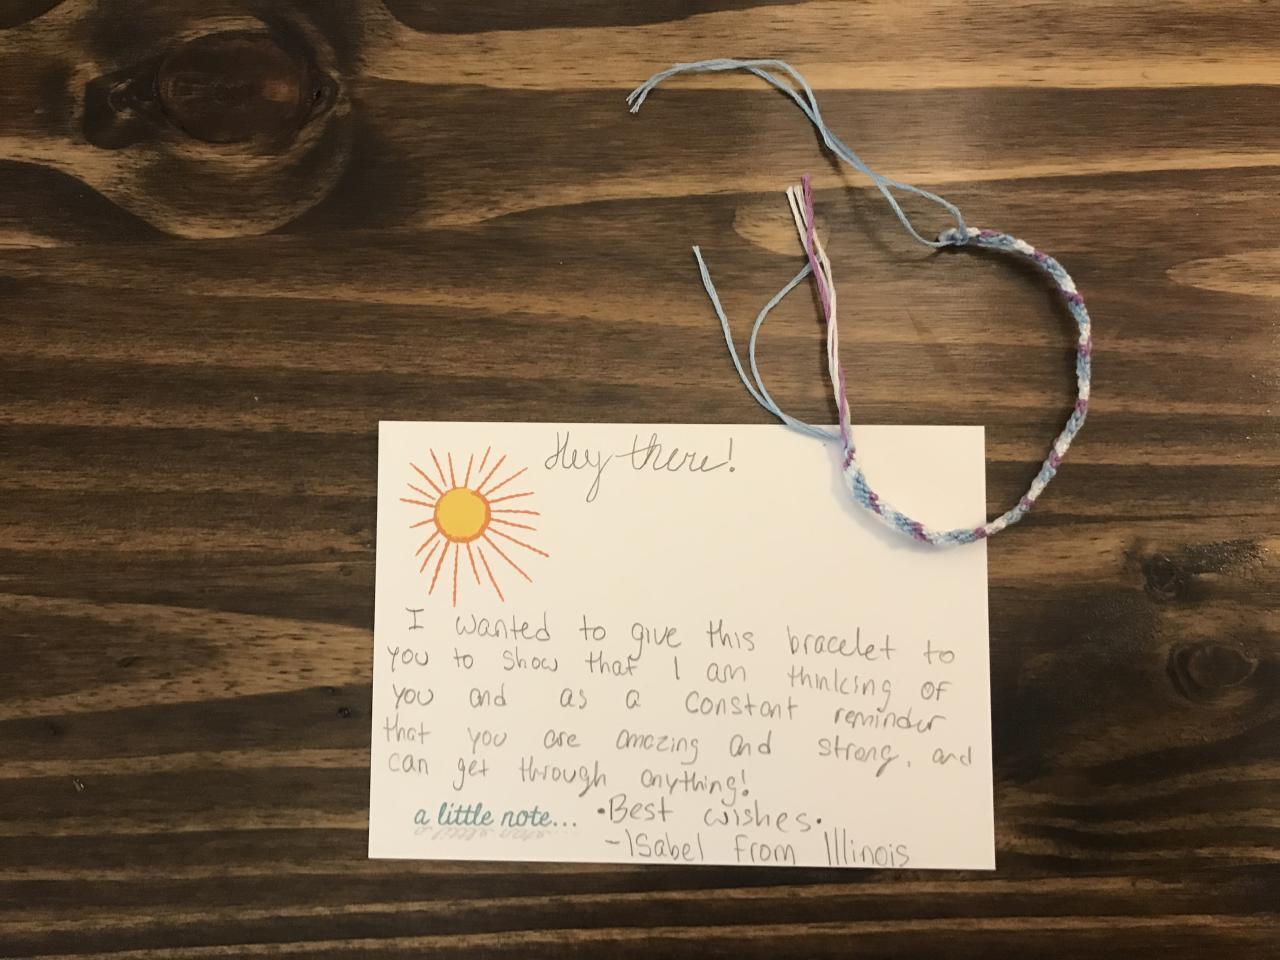 Hey there!
I wanted to give this bracelet to
you to show that I am thinking of
you and as a constant reminder
that you are amazing and strong, and
can get through anything!
a little note... •Best wishes•
-Isabel from Illinois